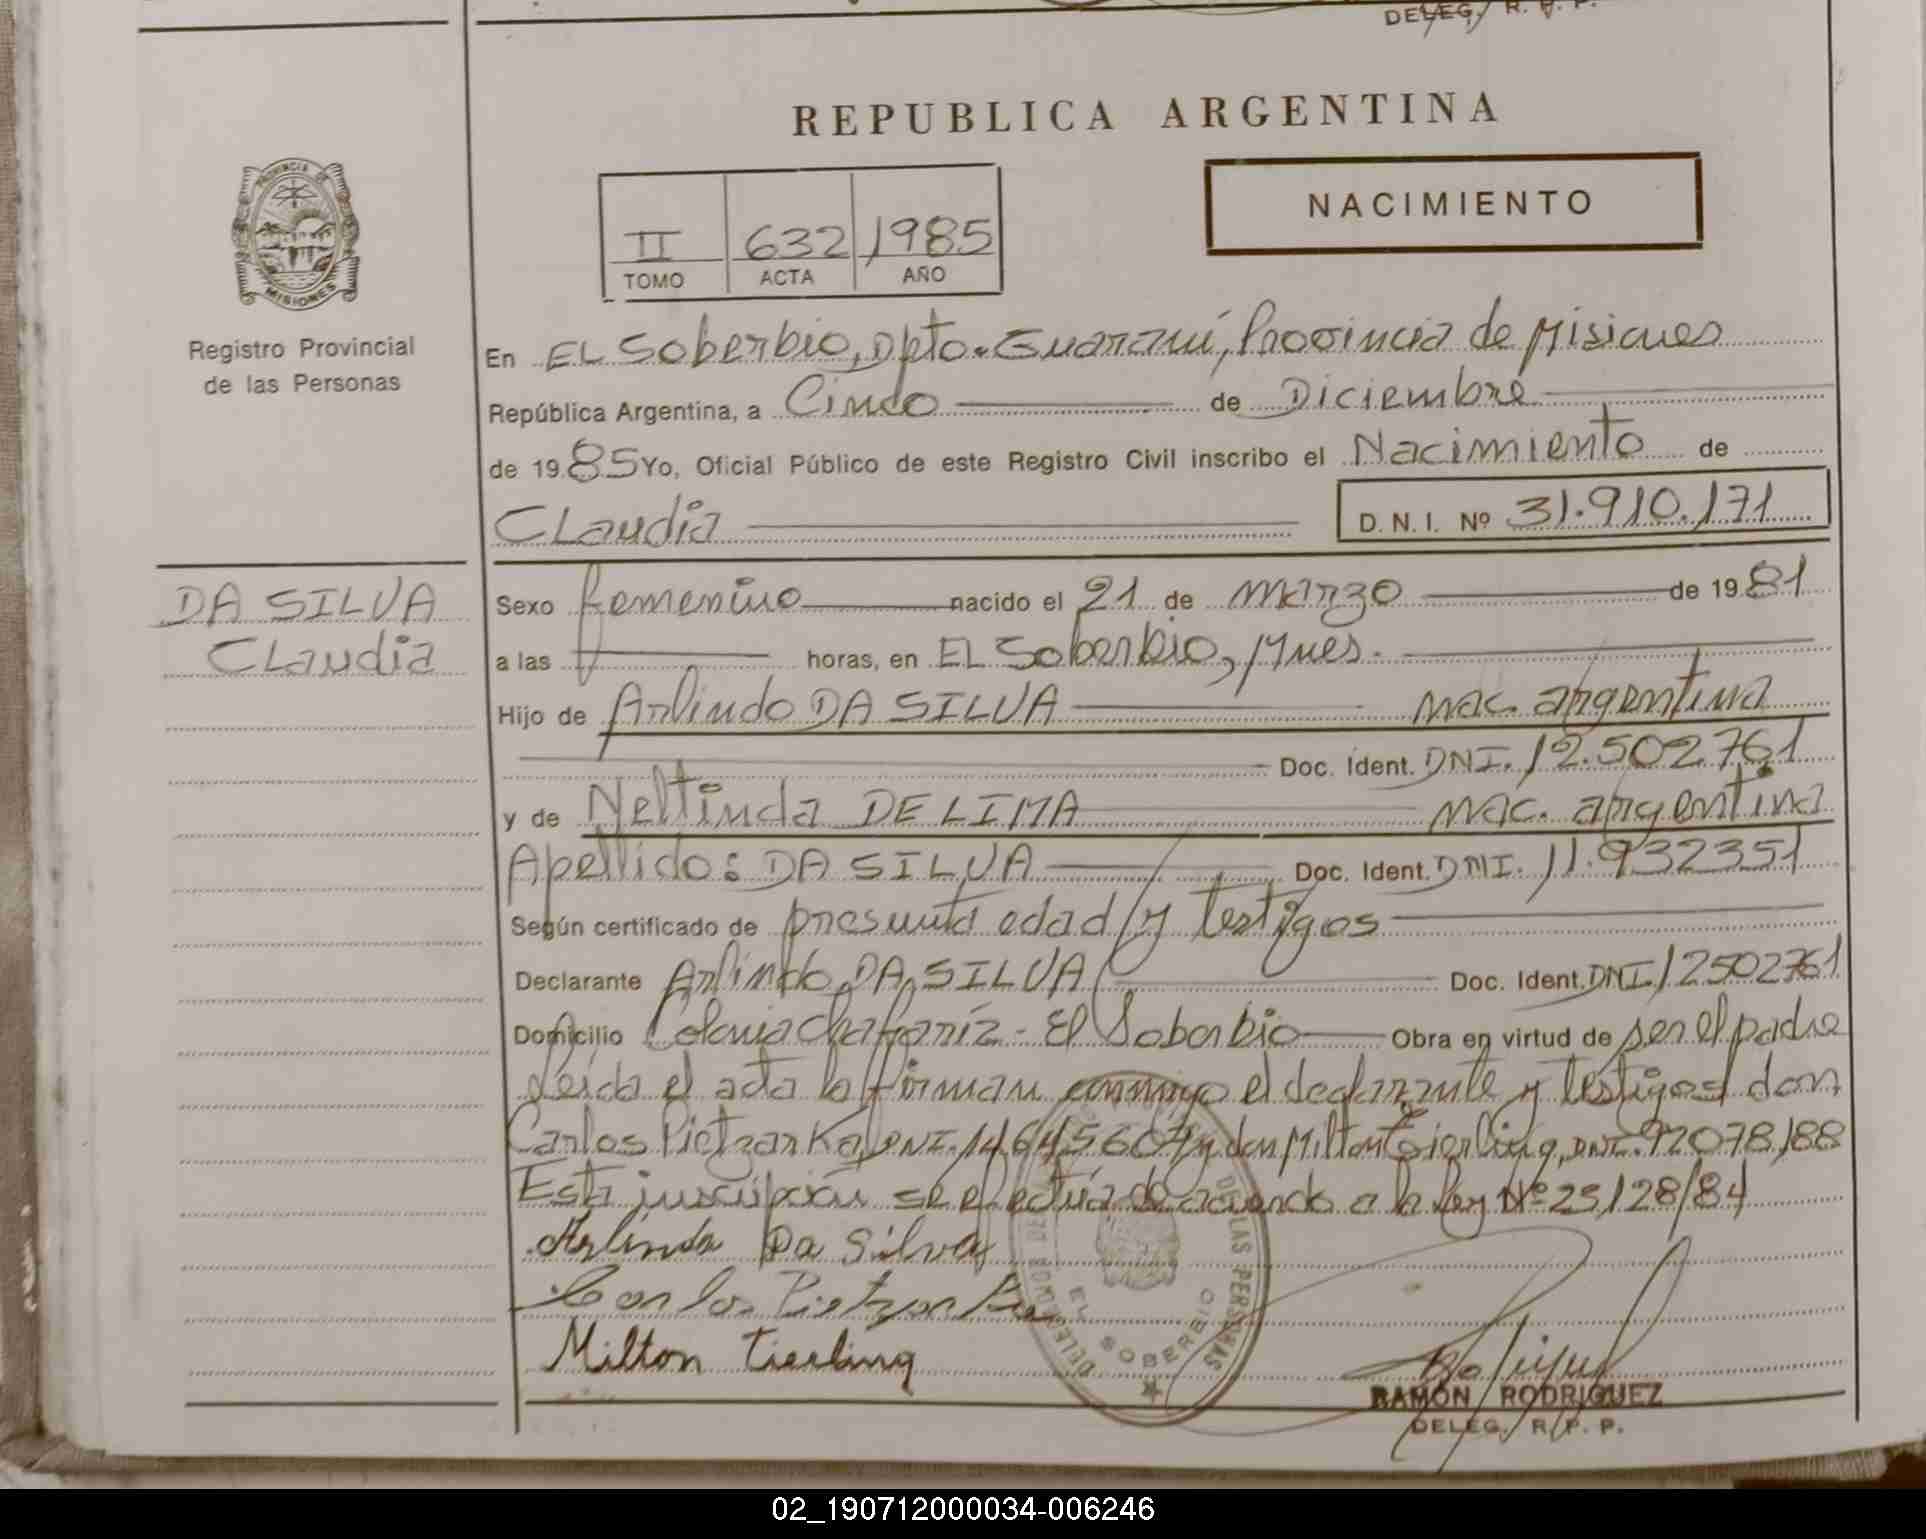 DELEG. R. P. P.
REPUBLICA ARGENTINA
PROVINCIA DE
MISIONES
NACIMIENTO
II 632 1985
TOMO ACTA AÑO
Registro Provincial
de las Personas
En EL Soberbio, Dpto. Guaraní, Provincia de Misiones
República Argentina, a Cinco de Diciembre
de 1985 Yo, Oficial Público de este Registro Civil inscribo el Nacimiento de
CLaudia D. N. I. Nº 31.910.171
DA SILVA
CLaudia
Sexo femenino nacido el 21 de Marzo de 1981
a las horas, en EL Soberbio, Mnes.
Hijo de Arlindo DA SILVA nac. argentina
Doc. Ident. DNI. 12.502.761
y de Neltinda DE LIMA nac. argentina
Apellido: DA SILVA Doc. Ident. DNI. 11.932351
Según certificado de presunta edad y testigos
Declarante Arlindo DA SILVA Doc. Ident. DNI. 12502761
Domicilio Colonia Chafariz - El Soberbio Obra en virtud de ser el padre
Leida el acta la firman conmigo el declarante y testigos don
Carlos Pietzarka, DNI. 14645607 y don Milton Tierling, DNI. 92078188
Esta inscripción se efectúa de acuerdo a la ley Nº 23128/84
Arlindo Da Silva
Carlos Pietzarka
Milton Tierling
DE LAS PERSONAS
EL SOBERBIO
RAMÓN RODRIGUEZ
DELEG. R. P. P.
02_190712000034-006246